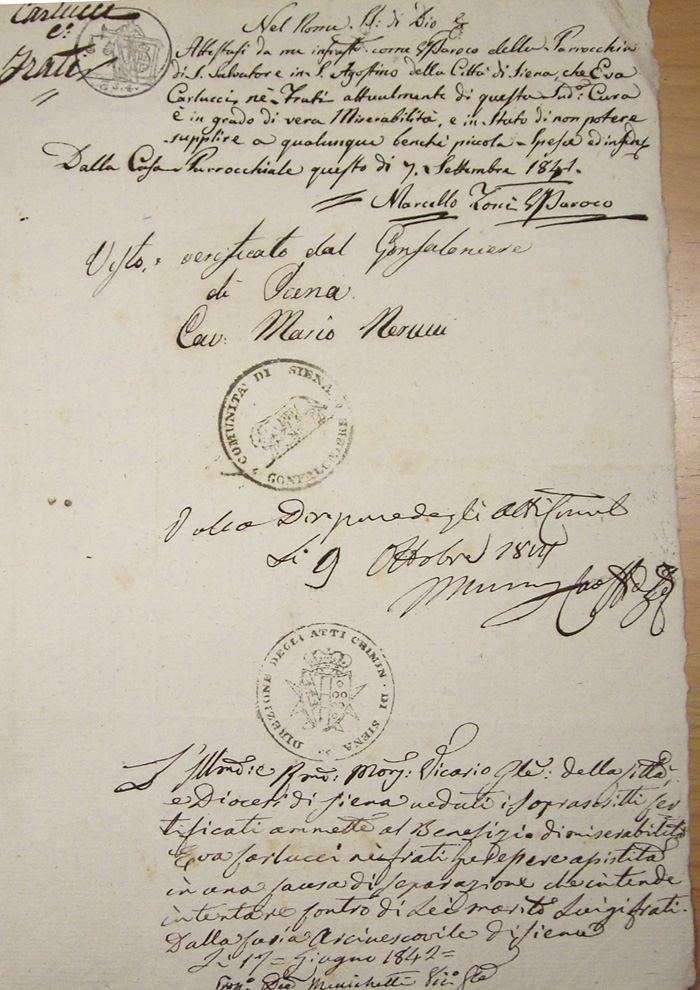 Carlucci
e
Frati
Nel Nome SS: di Dio
Attestasi da me infrasto come Paroco della Parrocchia
di S. Salvatore in S. Agostino della Città di Siena, che Eva
Carlucci ne' Frati attualmente di questa Sudª Cura
è in grado di vera Miserabilità, e in Stato di non potere
supplire a qualunque benchè piccola Spesa ed in fede
Dalla Casa Parrocchiale questo dì 7. Settembre 1841.
Marcello Toni Paroco
Visto, e verificato dal Gonfaloniere
di Siena
Cav: Mario Nerucci
COMUNITA' DI SIENA
GONFALONIERE
Dalla Direzione degli Atti Criminli
Li 9 Ottobre 1841
DIREZIONE DEGLI ATTI CRIMIN. DI SIENA
L'Illmo: e Rmo: Mons: Vicario Gle: della Città
e Diocesi di Siena veduti i soprascritti Cer
tificati ammette al Benefizio di miserabilità
Eva Carlucci nei Frati per essere assistita
in una Causa di separazione che intende
intentare contro di Lei marito Luigi Frati.
Dalla Curia Arcivescovile di Siena
Li 17= Giugno 1842=
Menichetti Vicº Gle